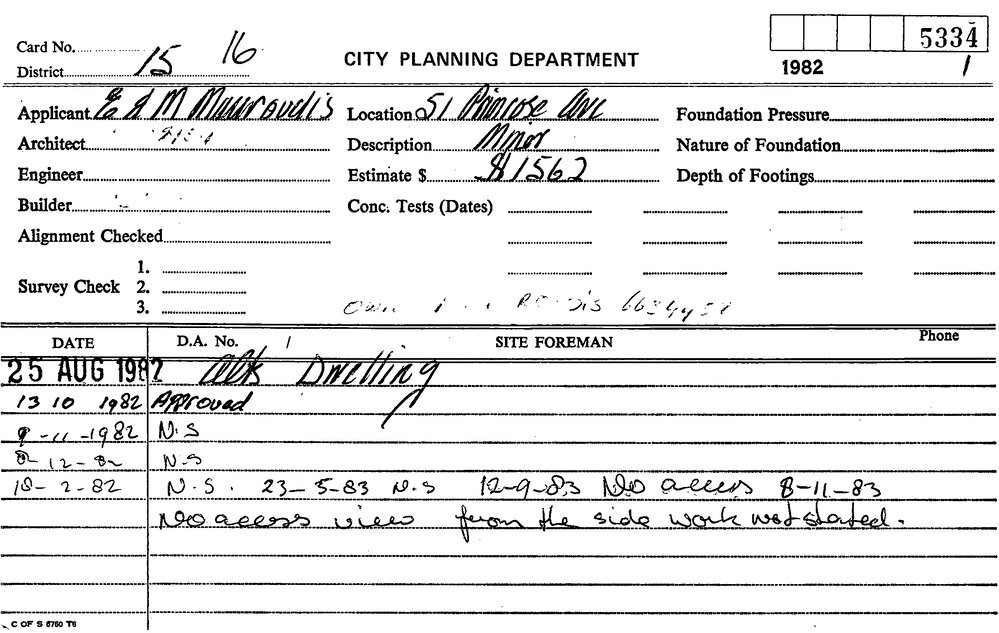 5334
Card No. 15 16
CITY PLANNING DEPARTMENT
District
1982 1
Applicant E & M
Location 51 Primrose Ave
Foundation Pressure
Architect
Description Minor
Nature of Foundation
Engineer
Estimate $ $1562
Depth of Footings
Builder
Conc. Tests (Dates)
Alignment Checked
1.
Survey Check 2.
3.
DATE D.A. No. / SITE FOREMAN Phone
25 AUG 1982 Alts Dwelling
13 10 1982 Approved
9-11-1982 N.S
8-12-82 N.S
18-2-82 N.S. 23-5-83 N.S 12-9-83 No access 8-11-83
No access view from the side work not started.
C OF S 6760 T6